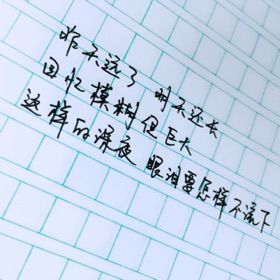 昨天远了 明天还长
回忆模糊但巨大
这样的深夜 眼泪要怎样不流下